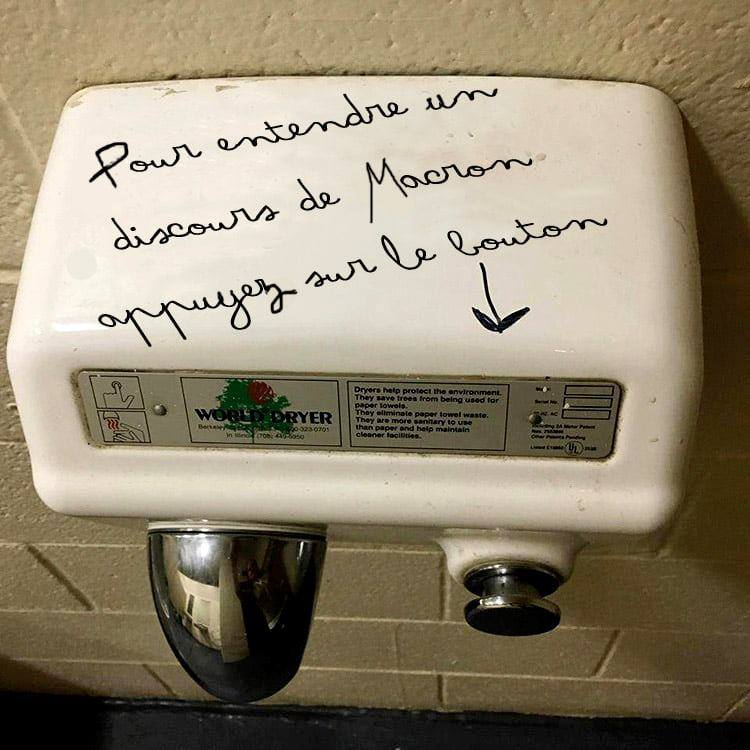 Pour entendre un
discours de Macron
appuyez sur le bouton
WORLD DRYER
Dryers help protect the environment.
They save trees from being used for
paper towels.
They eliminate paper towel waste.
They are more sanitary to use
than paper and help maintain
cleaner facilities.
Serial No.
Other Patents Pending
UL